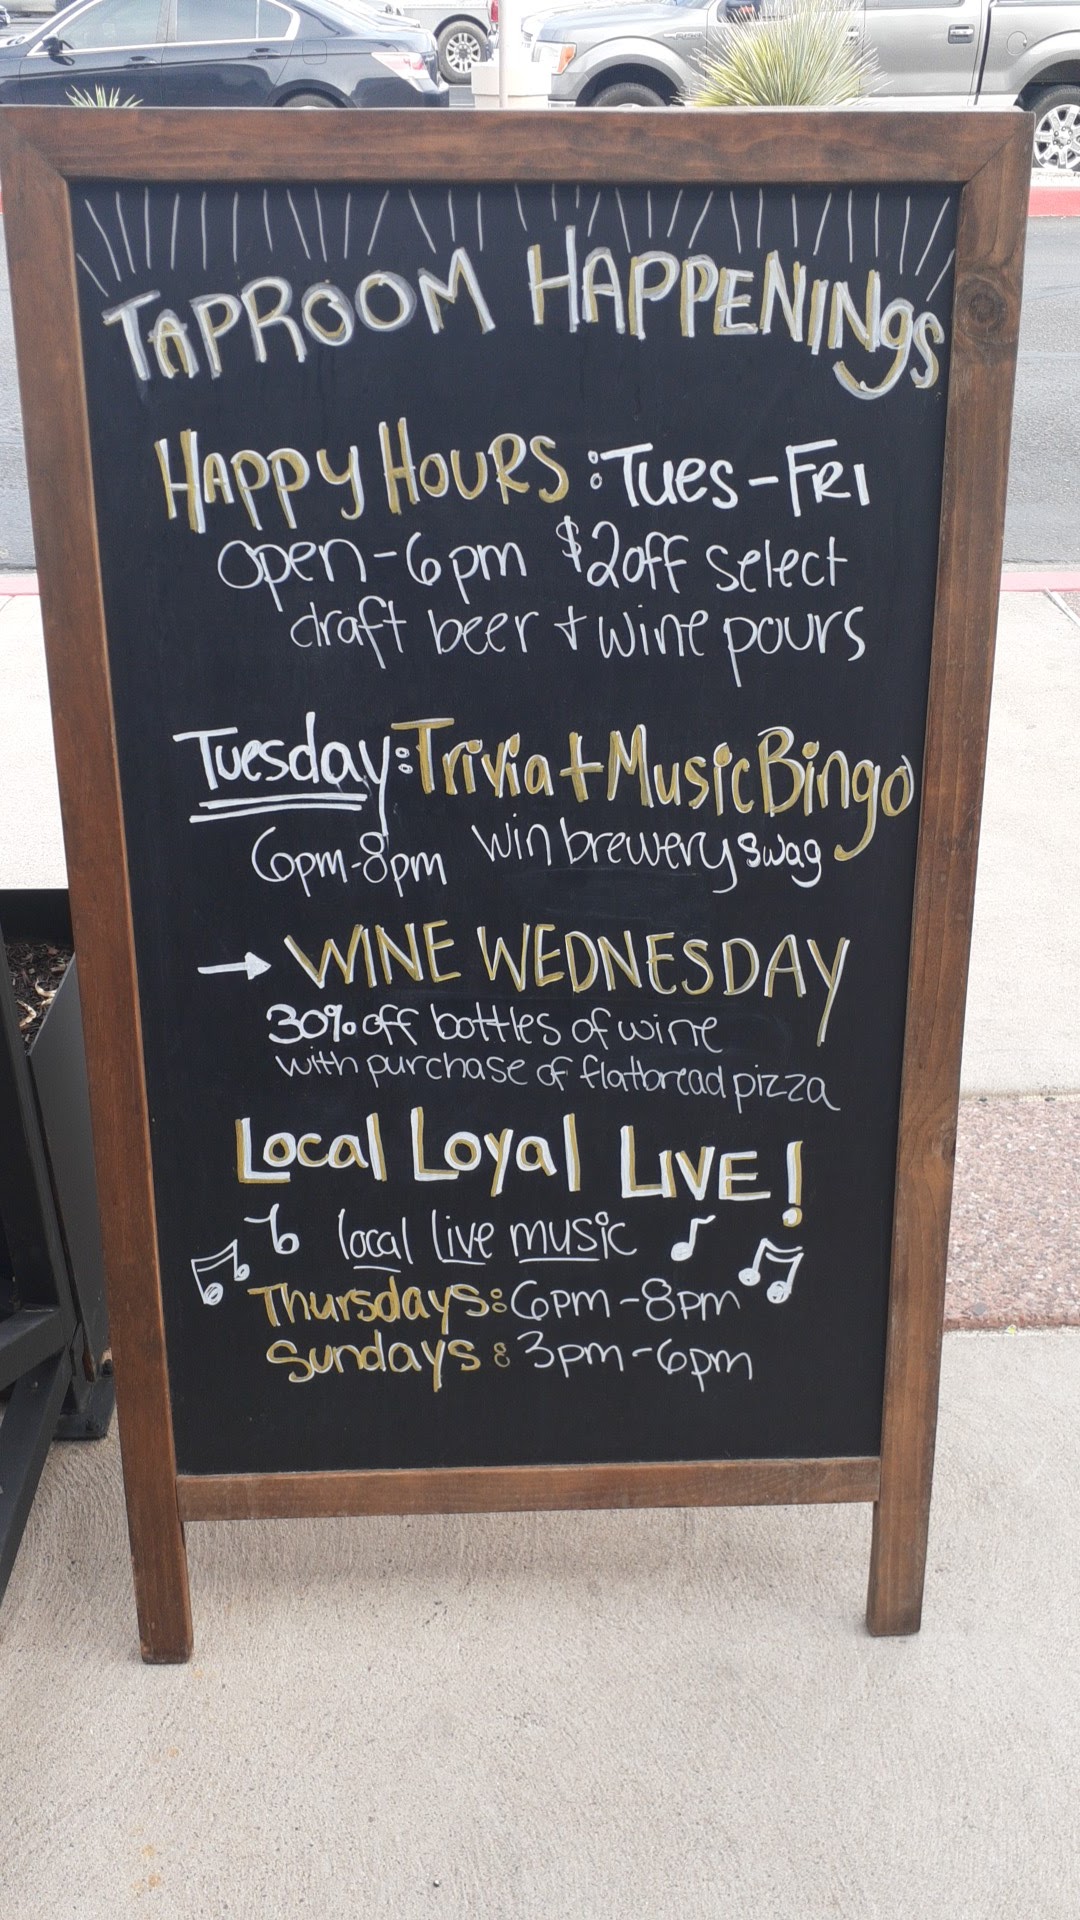 TAPROOM HAPPENINGS
HAPPY HOURS : TUES - FRI
open - 6pm $2 off select
draft beer + wine pours
Tuesday: Trivia + Music Bingo
6pm-8pm win brewery swag
→ WINE WEDNESDAY
30% off bottles of wine
with purchase of flatbread pizza
Local Loyal LIVE!
local live music
Thursdays: 6pm-8pm
Sundays: 3pm-6pm